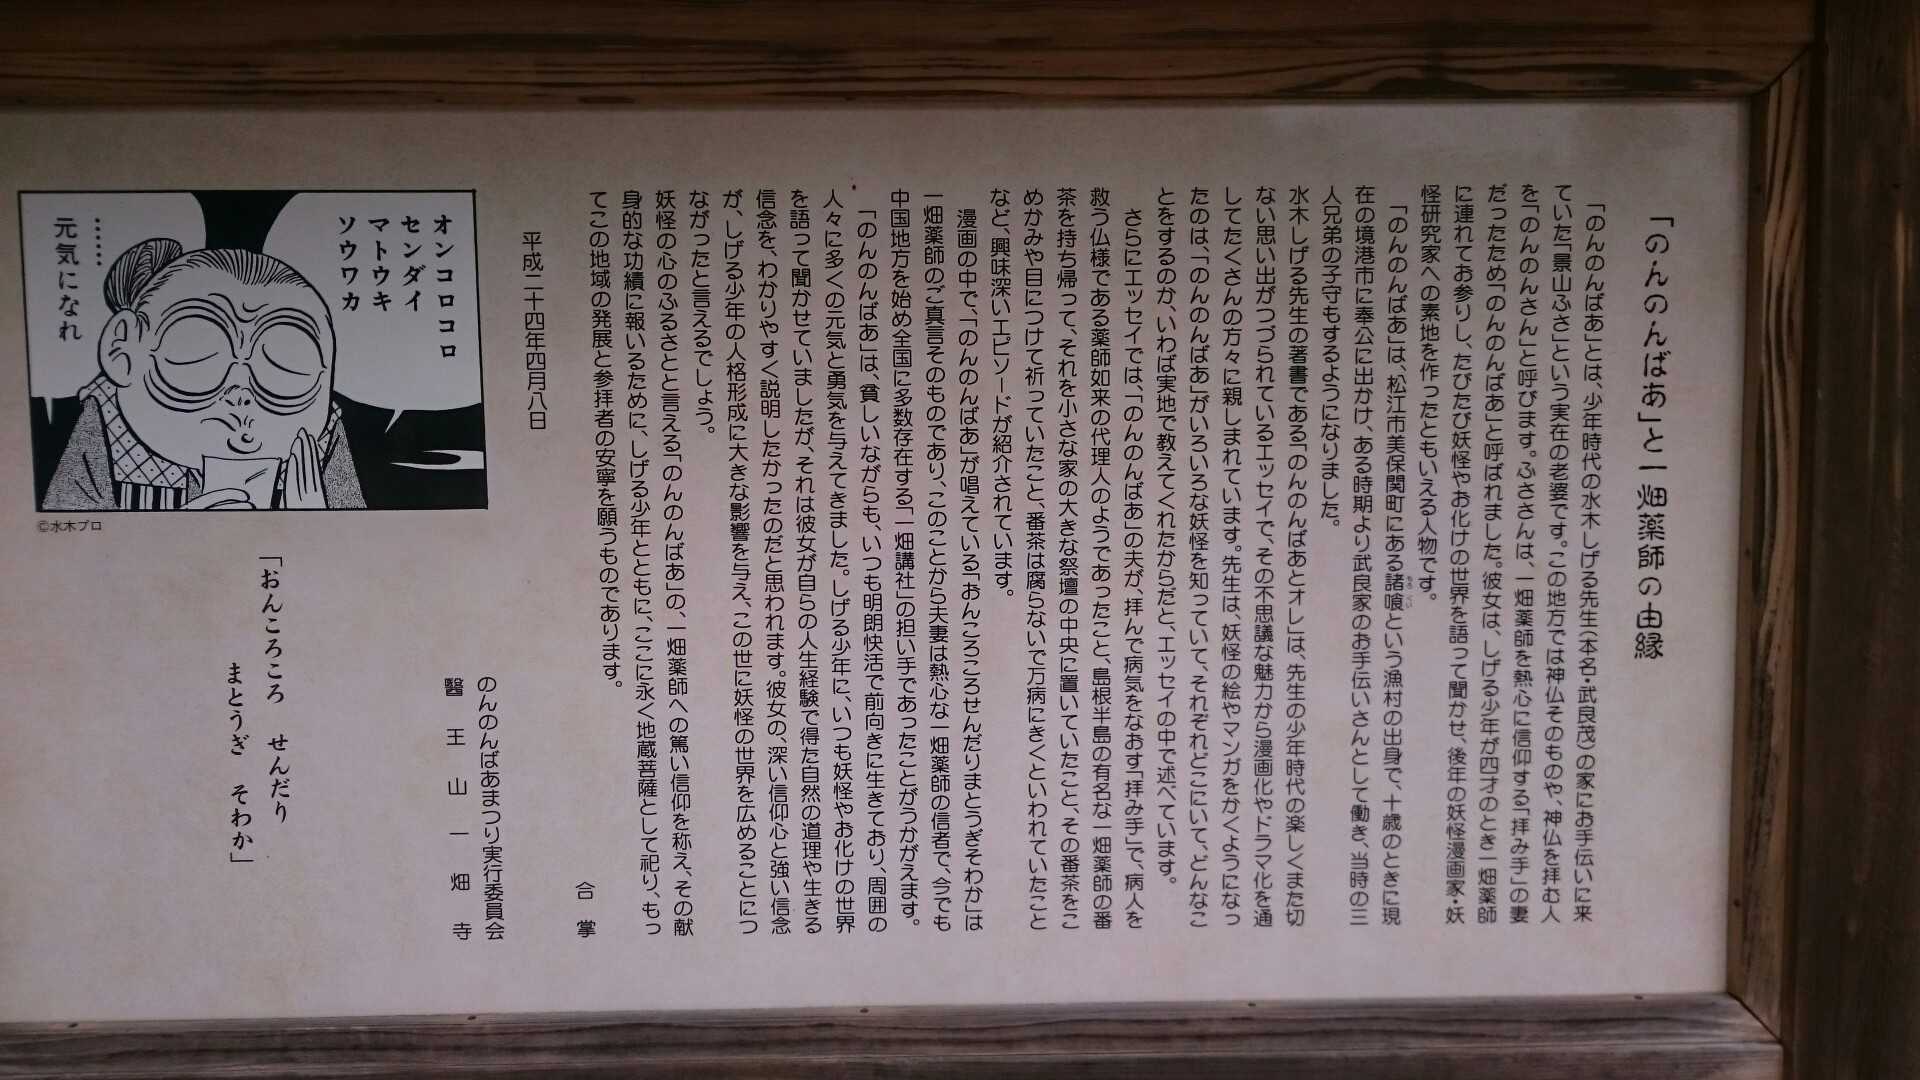 「のんのんばあ」と一畑薬師の由縁
「のんのんばあ」とは、少年時代の水木しげる先生(本名・武良茂)の家にお手伝いに来
ていた「景山ふさ」という実在の老婆です。この地方では神仏そのものや、神仏を拝む人
を「のんのんさん」と呼びます。ふささんは、一畑薬師を熱心に信仰する「拝み手」の妻
だったため「のんのんばあ」と呼ばれました。彼女は、しげる少年が四才のとき一畑薬師
に連れてお参りし、たびたび妖怪やお化けの世界を語って聞かせ、後年の妖怪漫画家・妖
怪研究家への素地を作ったともいえる人物です。
「のんのんばあ」は、松江市美保関町にある諸喰という漁村の出身で、十歳のときに現
在の境港市に奉公に出かけ、ある時期より武良家のお手伝いさんとして働き、当時の三
人兄弟の子守もするようになりました。
水木しげる先生の著書である「のんのんばあとオレ」は、先生の少年時代の楽しくまた切
ない思い出がつづられているエッセイで、その不思議な魅力から漫画化やドラマ化を通
してたくさんの方々に親しまれています。先生は、妖怪の絵やマンガをかくようになっ
たのは、「のんのんばあ」がいろいろな妖怪を知っていて、それぞれどこにいて、どんなこ
とをするのか、いわば実地で教えてくれたからだと、エッセイの中で述べています。
さらにエッセイでは、「のんのんばあ」の夫が、拝んで病気をなおす「拝み手」で、病人を
救う仏様である薬師如来の代理人のようであったこと、島根半島の有名な一畑薬師の番
茶を持ち帰って、それを小さな家の大きな祭壇の中央に置いていたこと、その番茶をこ
めかみや目につけて祈っていたこと、番茶は腐らないで万病にきくといわれていたこと
など、興味深いエピソードが紹介されています。
漫画の中で、「のんのんばあ」が唱えている「おんころころせんだりまとうぎそわか」は
一畑薬師のご真言そのものであり、このことから夫妻は熱心な一畑薬師の信者で、今でも
中国地方を始め全国に多数存在する「一畑講社」の担い手であったことがうかがえます。
「のんのんばあ」は、貧しいながらも、いつも明朗快活で前向きに生きており、周囲の
人々に多くの元気と勇気を与えてきました。しげる少年に、いつも妖怪やお化けの世界
を語って聞かせていましたが、それは彼女が自らの人生経験で得た自然の道理や生きる
信念を、わかりやすく説明したかったのだと思われます。彼女の、深い信仰心と強い信念
が、しげる少年の人格形成に大きな影響を与え、この世に妖怪の世界を広めることにつ
ながったと言えるでしょう。
妖怪の心のふるさとと言える「のんのんばあ」の、一畑薬師への篤い信仰を称え、その献
身的な功績に報いるために、しげる少年とともに、ここに永く地蔵菩薩として祀り、もっ
てこの地域の発展と参拝者の安寧を願うものであります。
合掌
平成二十四年四月八日
のんのんばあまつり実行委員会
醫王山一畑寺
オンコロコロ
センダイ
マトウキ
ソウワカ
……
元気になれ
©水木プロ
「おんころころ せんだり
まとうぎ そわか」